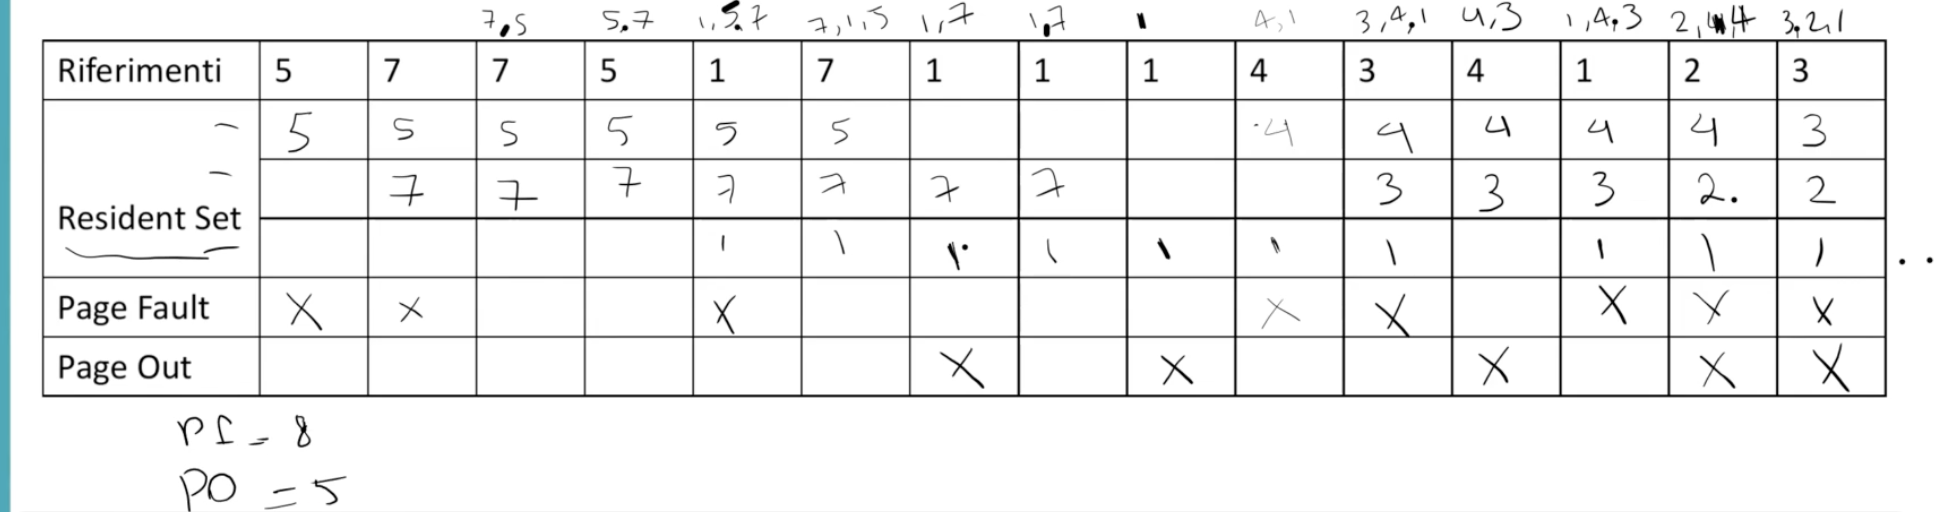 7,5 5,7 1,5,7 7,1,5 1,7 1,7 1 4,1 3,4,1 4,3 1,4,3 2,1,4 3,2,1
Riferimenti 5 7 7 5 1 7 1 1 1 4 3 4 1 2 3
- 5 5 5 5 5 5 4 4 4 4 4 3
- 7 7 7 7 7 7 7 3 3 3 2. 2
Resident Set
1 1 1 1 1 1 1 1 1 1 . .
Page Fault X X X X X X X X
Page Out X X X X X
PF = 8
PO = 5